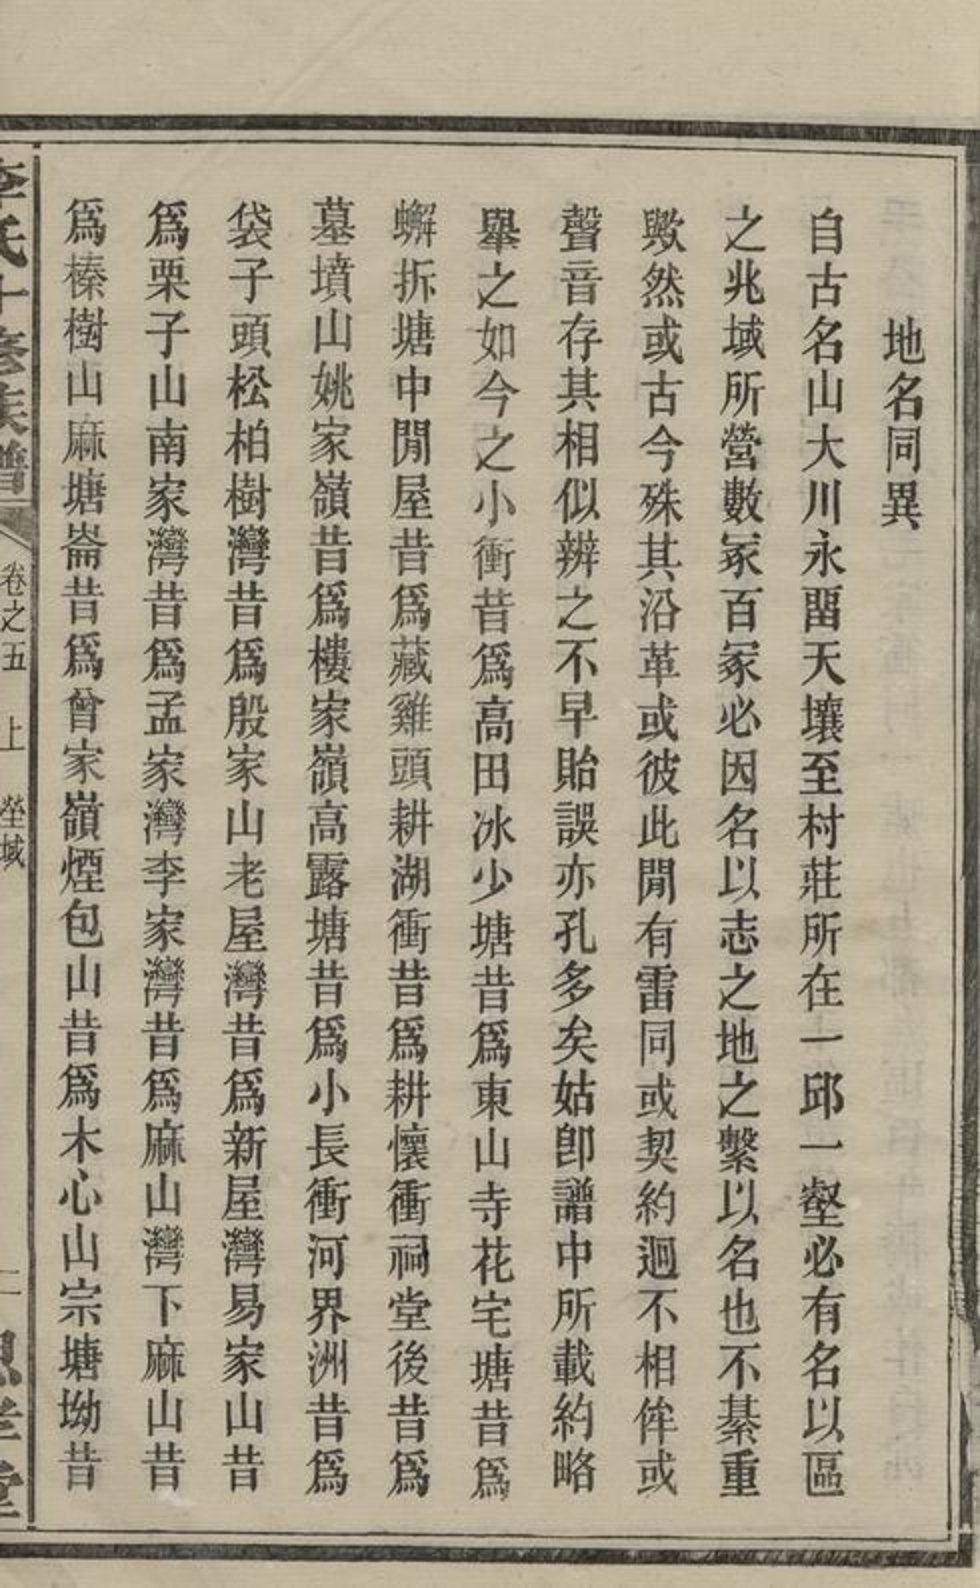 地名同異
自古名山大川永畱天壤至村莊所在一邱一壑必有名以區
之兆域所營數冢百冢必因名以志之地之繫以名也不綦重
歟然或古今殊其沿革或彼此閒有雷同或契約迥不相侔或
聲音存其相似辨之不早貽誤亦孔多矣姑卽譜中所載約略
舉之如今之小衝昔爲高田冰少塘昔爲東山寺花宅塘昔爲
蠏拆塘中閒屋昔爲藏雞頭耕湖衝昔爲耕懷衝祠堂後昔爲
墓墳山姚家嶺昔爲樓家嶺高露塘昔爲小長衝河界洲昔爲
袋子頭松柏樹灣昔爲殷家山老屋灣昔爲新屋灣易家山昔
爲栗子山南家灣昔爲孟家灣李家灣昔爲麻山灣下麻山昔
爲榛樹山麻塘崙昔爲曾家嶺煙包山昔爲木心山宗塘坳昔
李氏十修族譜
卷之五 上 塋域